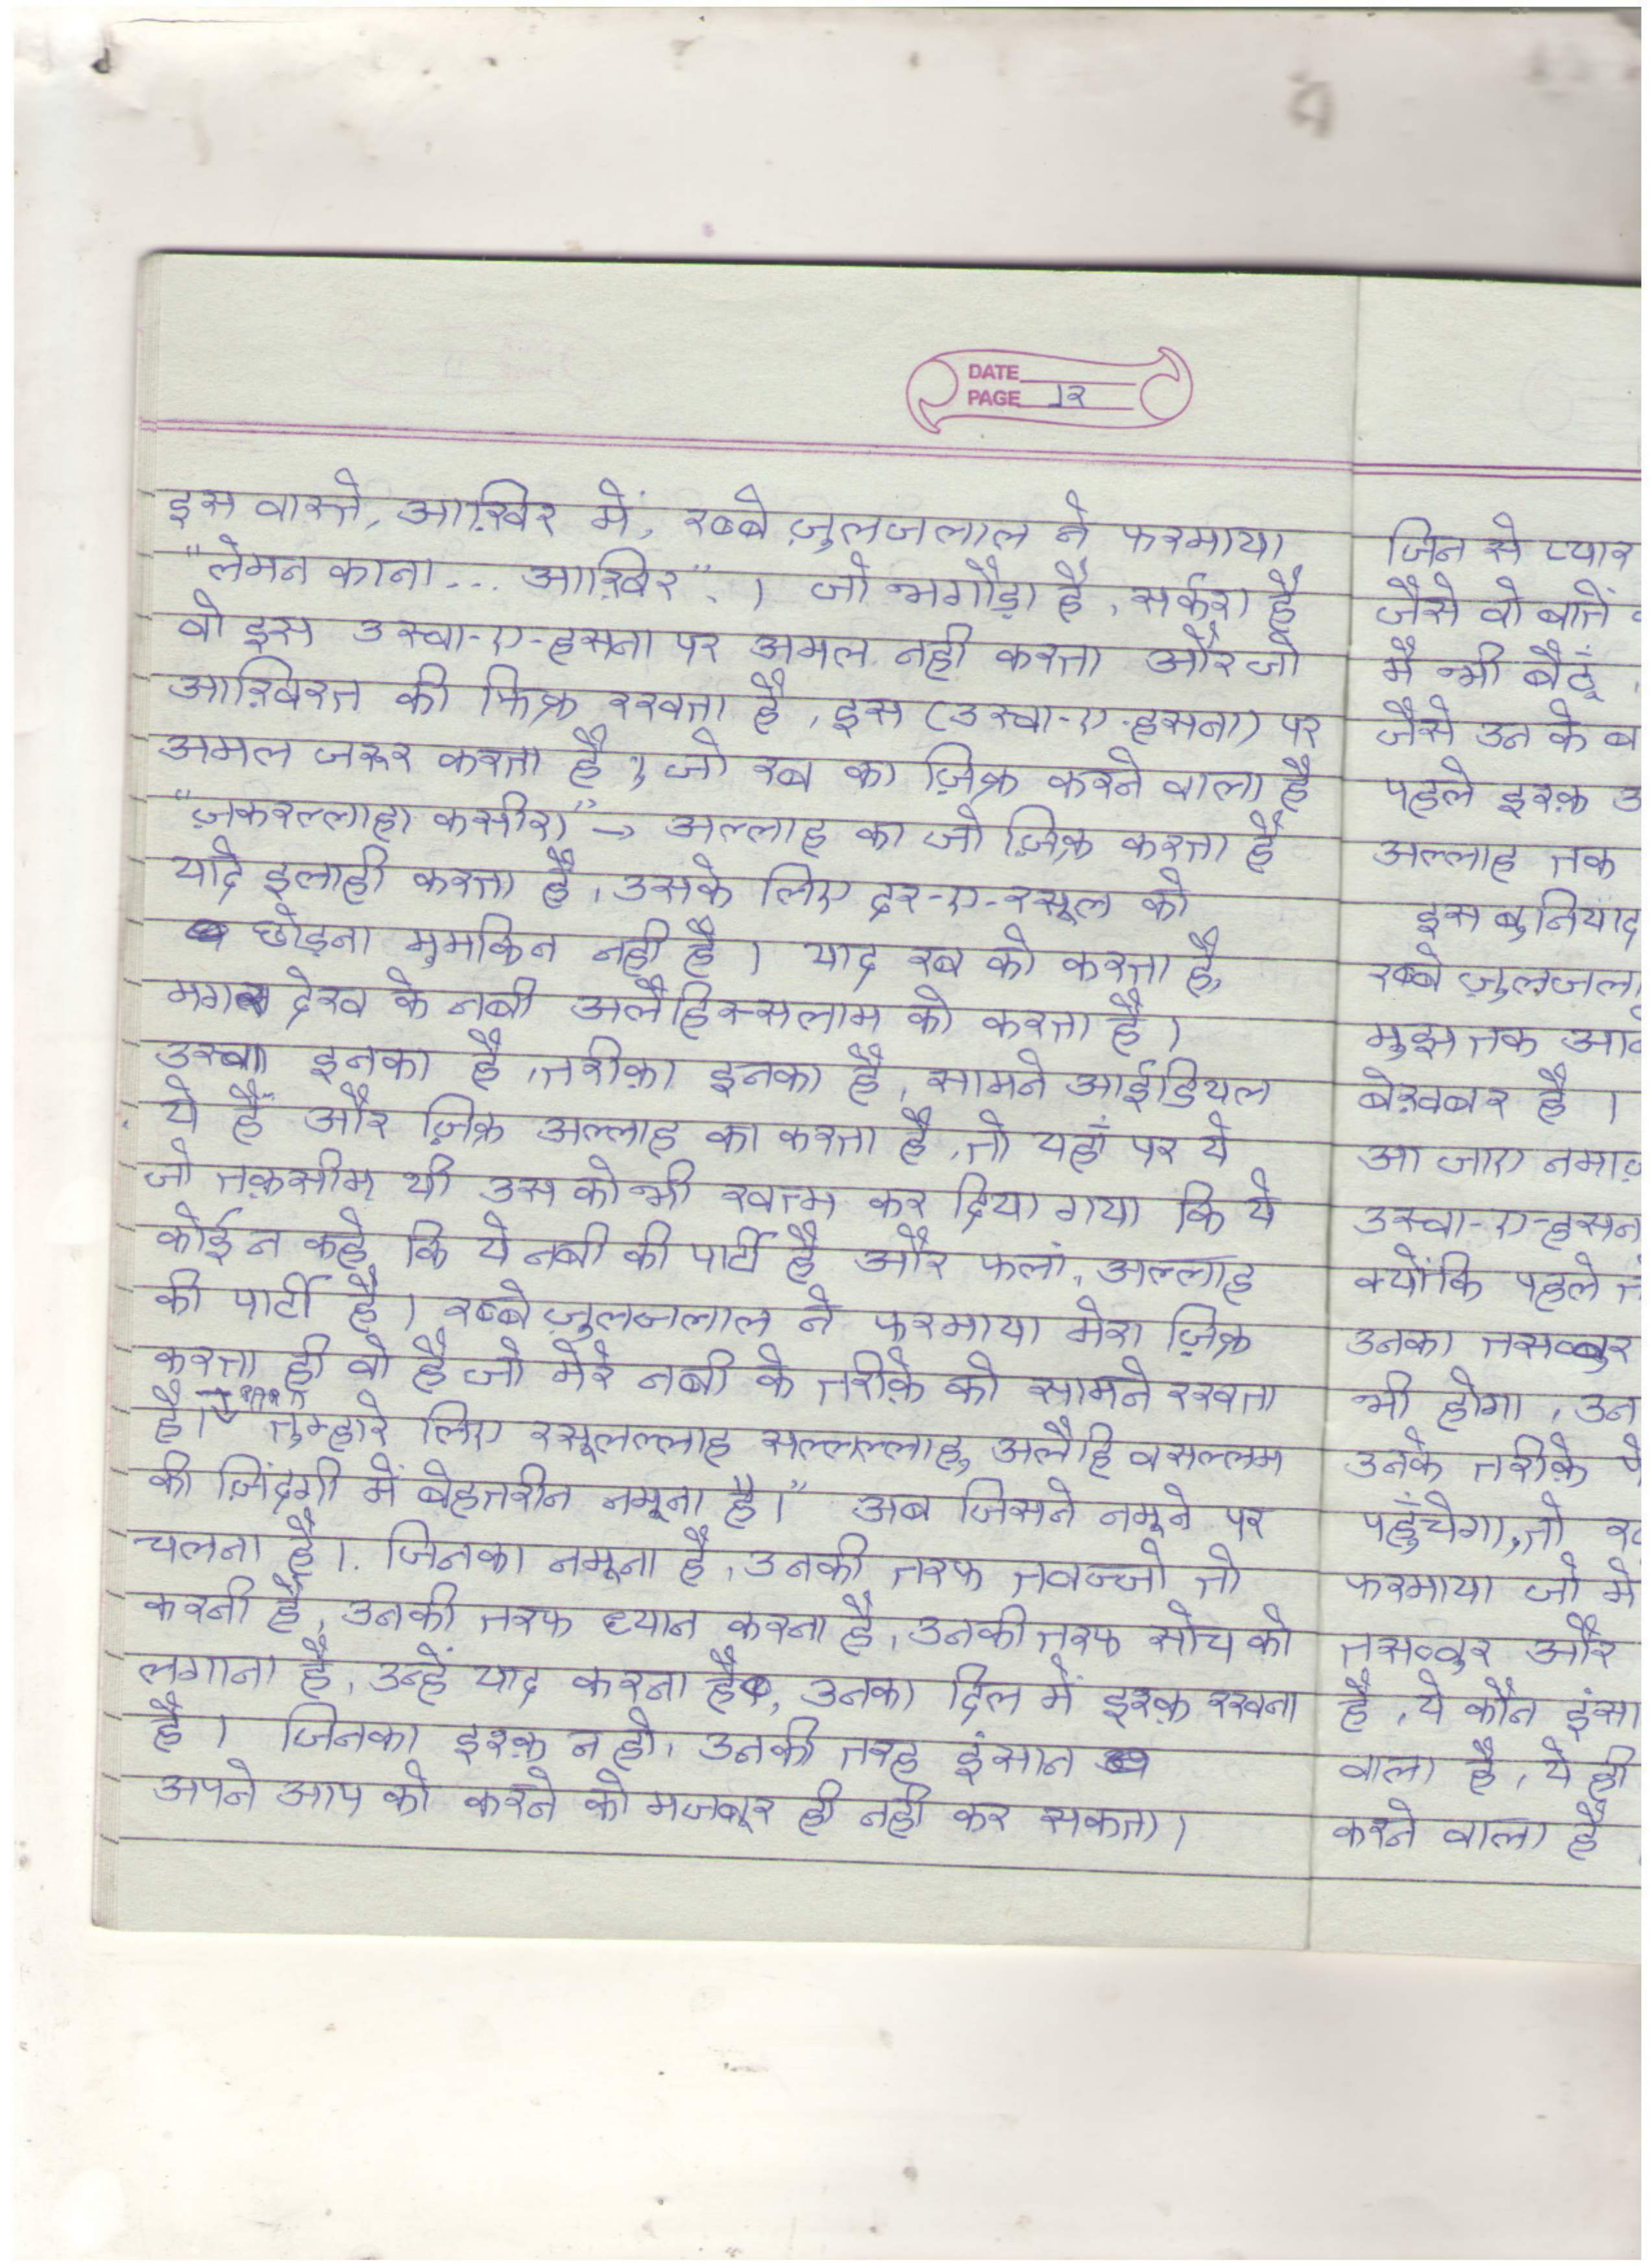 DATE
PAGE 12
इस वास्ते, आख़िर में, रब्बे ज़ुलजलाल ने फरमाया
"लेमन काना... आख़िर"। जो भगौड़ा है, सर्कश है
वो इस उस्वा-ए-हसना पर अमल नही करता और जो
आख़िरत की फिक्र रखता है, इस (उस्वा-ए-हसना) पर
अमल जरूर करता है, जो रब का ज़िक्र करने वाला है
"ज़करल्लाहा कसीरा" → अल्लाह का जो ज़िक्र करता है
यादे इलाही करता है, उसके लिए दर-ए-रसूल को
छोड़ना मुमकिन नही है। याद रब को करता है,
मगर देख के नबी अलैहिस्सलाम को करता है।
उस्वा इनका है, तरीक़ा इनका है, सामने आईडियल
ये हैं और ज़िक्र अल्लाह का करता है, तो यहाँ पर ये
जो तक़सीम थी उस को भी खत्म कर दिया गया कि ये
कोई न कहे कि ये नबी की पार्टी है और फलां, अल्लाह
की पार्टी है। रब्बे ज़ुलजलाल ने फरमाया मेरा ज़िक्र
करता ही वो है जो मेरे नबी के तरीक़े को सामने रखता
है। "तुम्हारे लिए रसूलल्लाह सल्लल्लाहु अलैहि वसल्लम
की ज़िंदगी में बेहतरीन नमूना है।" अब जिसने नमूने पर
चलना है। जिनका नमूना है, उनकी तरफ तवज्जो तो
करनी है, उनकी तरफ ध्यान करना है, उनकी तरफ सोच को
लगाना है, उन्हें याद करना है, उनका दिल में इश्क़ रखना
है। जिनका इश्क़ न हो, उनकी तरह इंसान
अपने आप को करने को मजबूर ही नही कर सकता।
जिन से प्यार
जैसे वो बातें
मै भी बैठूं,
जैसे उन के ब
पहले इश्क़ उ
अल्लाह तक
इस बुनियाद
रब्बे ज़ुलजला
मुझ तक आने
बेख़बर है।
आ जाए नमाज़
उस्वा-ए-हसन
क्योंकि पहले त
उनका तसव्वुर
भी होगा, उन
उनके तरीक़े पे
पहुँचेगा, तो
फरमाया जो मे
तसव्वुर और
है, ये कौन इंसा
वाला है, ये ही
करने वाला है